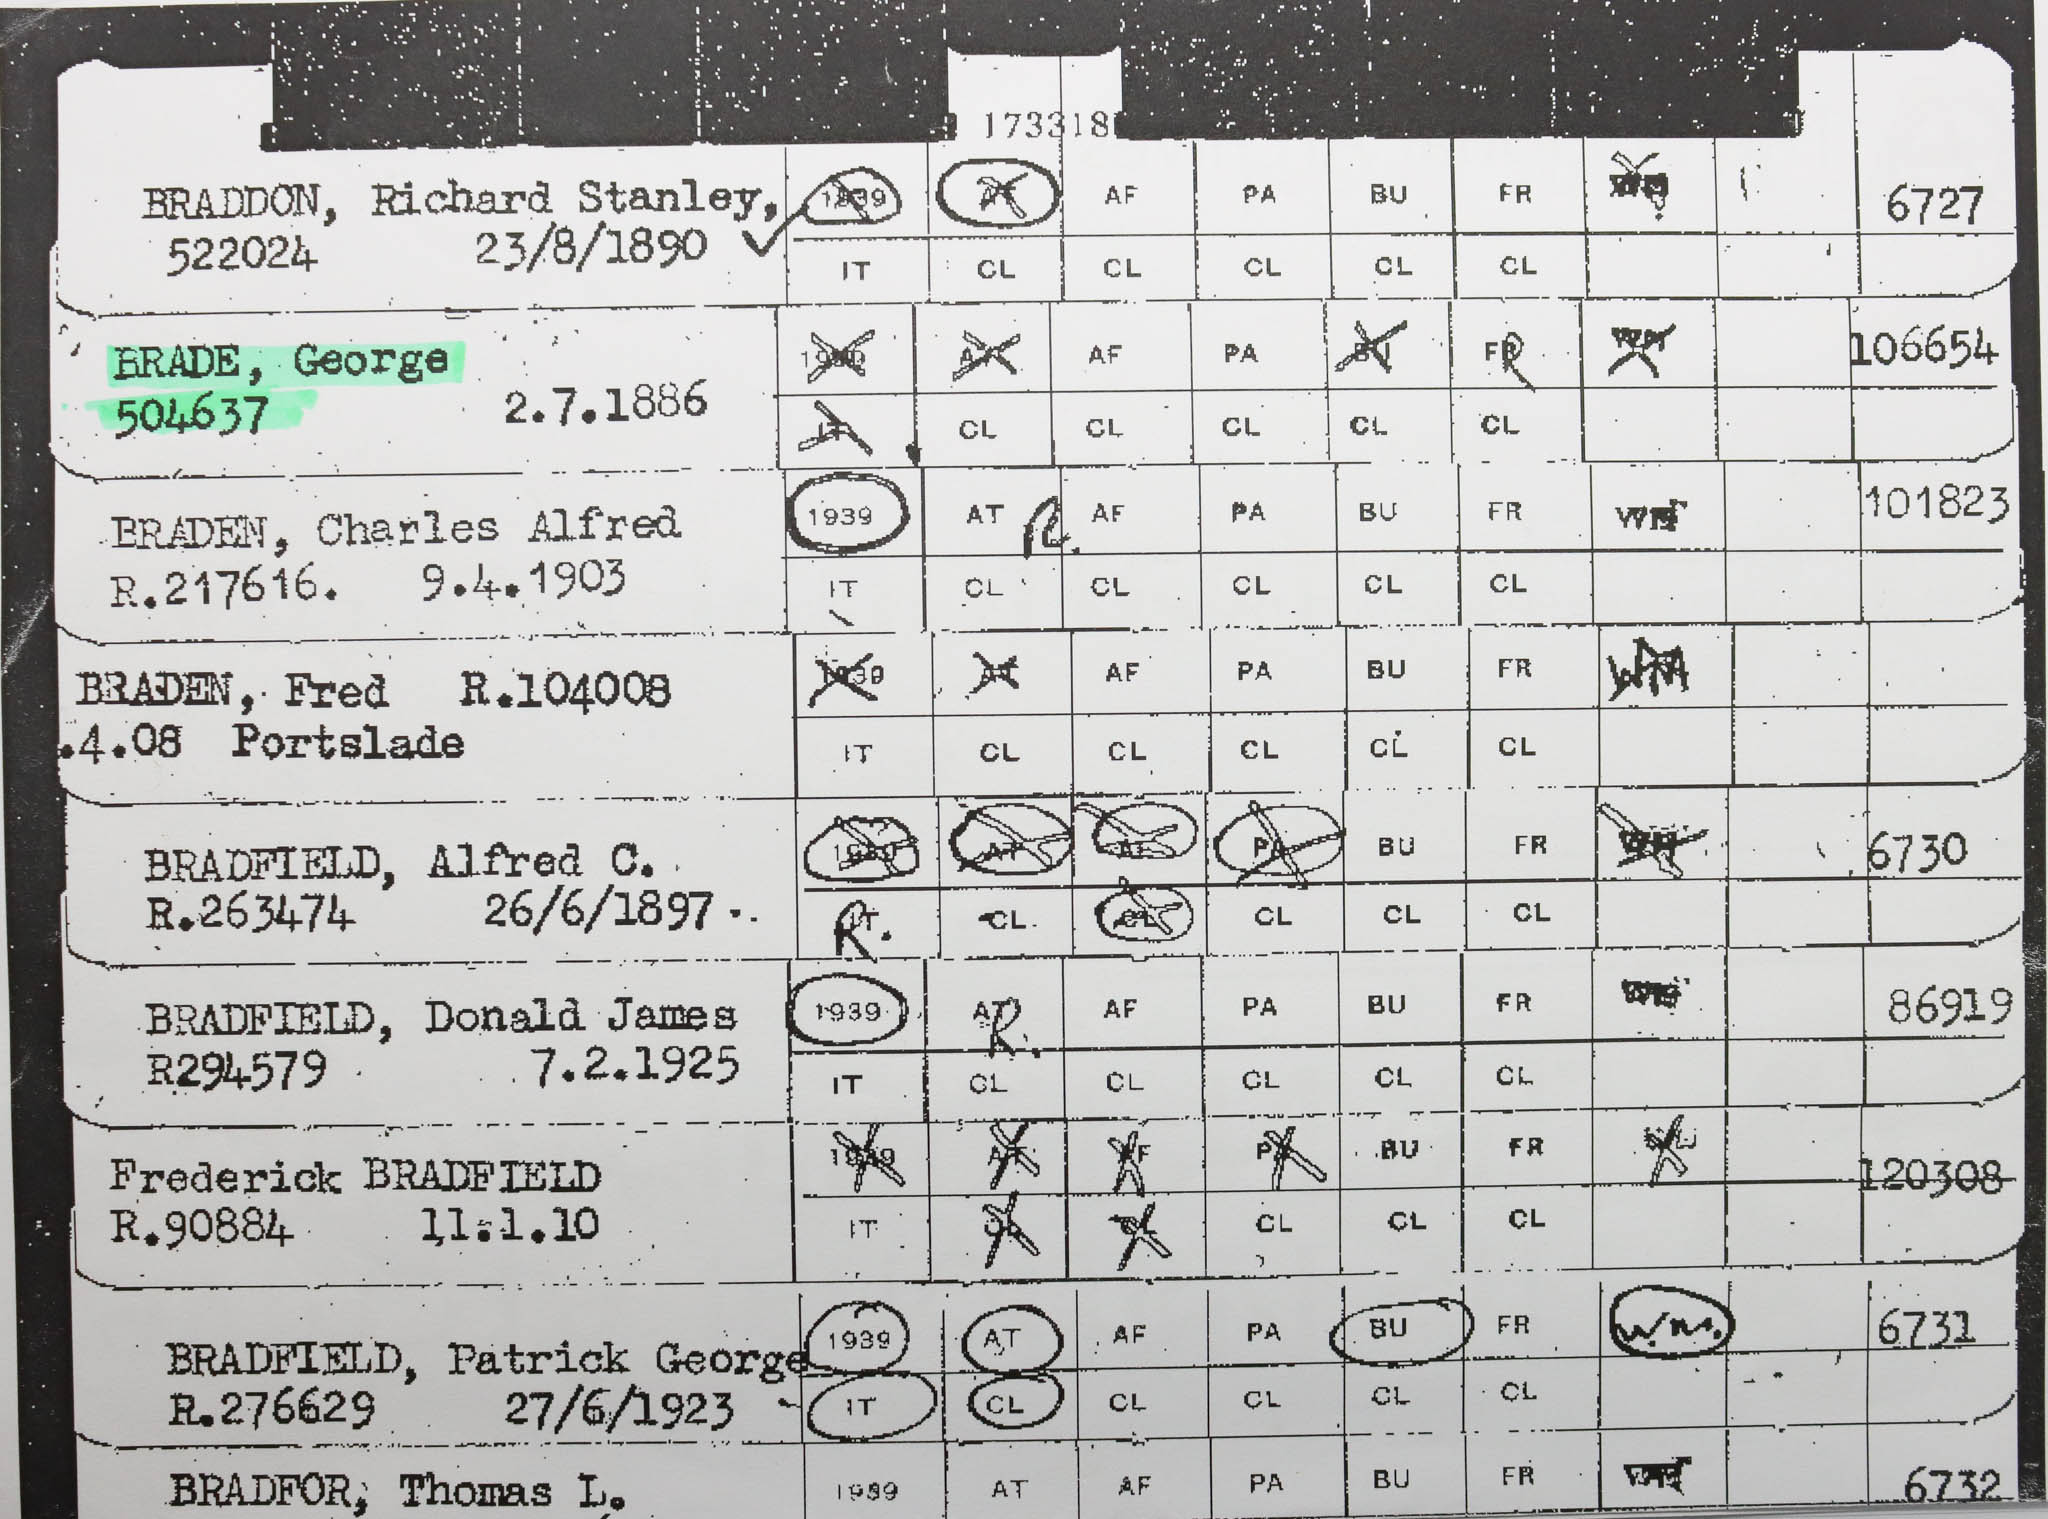 173318
BRADDON, Richard Stanley, 1939 AT AF PA BU FR WM 6727
522024 23/8/1890 IT CL CL CL CL CL
BRADE, George 1939 AT AF PA BU FR WM 106654
504637 2.7.1886 IT CL CL CL CL CL
BRADEN, Charles Alfred 1939 AT R. AF PA BU FR WM 101823
R.217616. 9.4.1903 IT CL CL CL CL CL
BRADEN, Fred R.104008 1939 AT AF PA BU FR WM
.4.08 Portslade IT CL CL CL CL CL
BRADFIELD, Alfred C. 1939 AT AF PA BU FR WM 6730
R.263474 26/6/1897.. IT R. CL CL CL CL CL
BRADFIELD, Donald James 1939 AT R. AF PA BU FR WM 86919
R294579 7.2.1925 IT CL CL CL CL CL
Frederick BRADFIELD 1939 AT AF PA BU FR 120308
R.90884 11.1.10 IT CL CL CL CL CL
BRADFIELD, Patrick George 1939 AT AF PA BU FR W.M. 6731
R.276629 27/6/1923 IT CL CL CL CL CL
BRADFOR, Thomas L. 1939 AT AF PA BU FR WM 6732